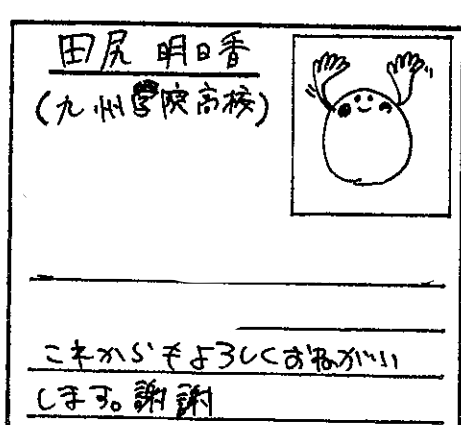 田尻 明日香
(九州学院高校)
これからもよろしくおねがい
します。謝謝